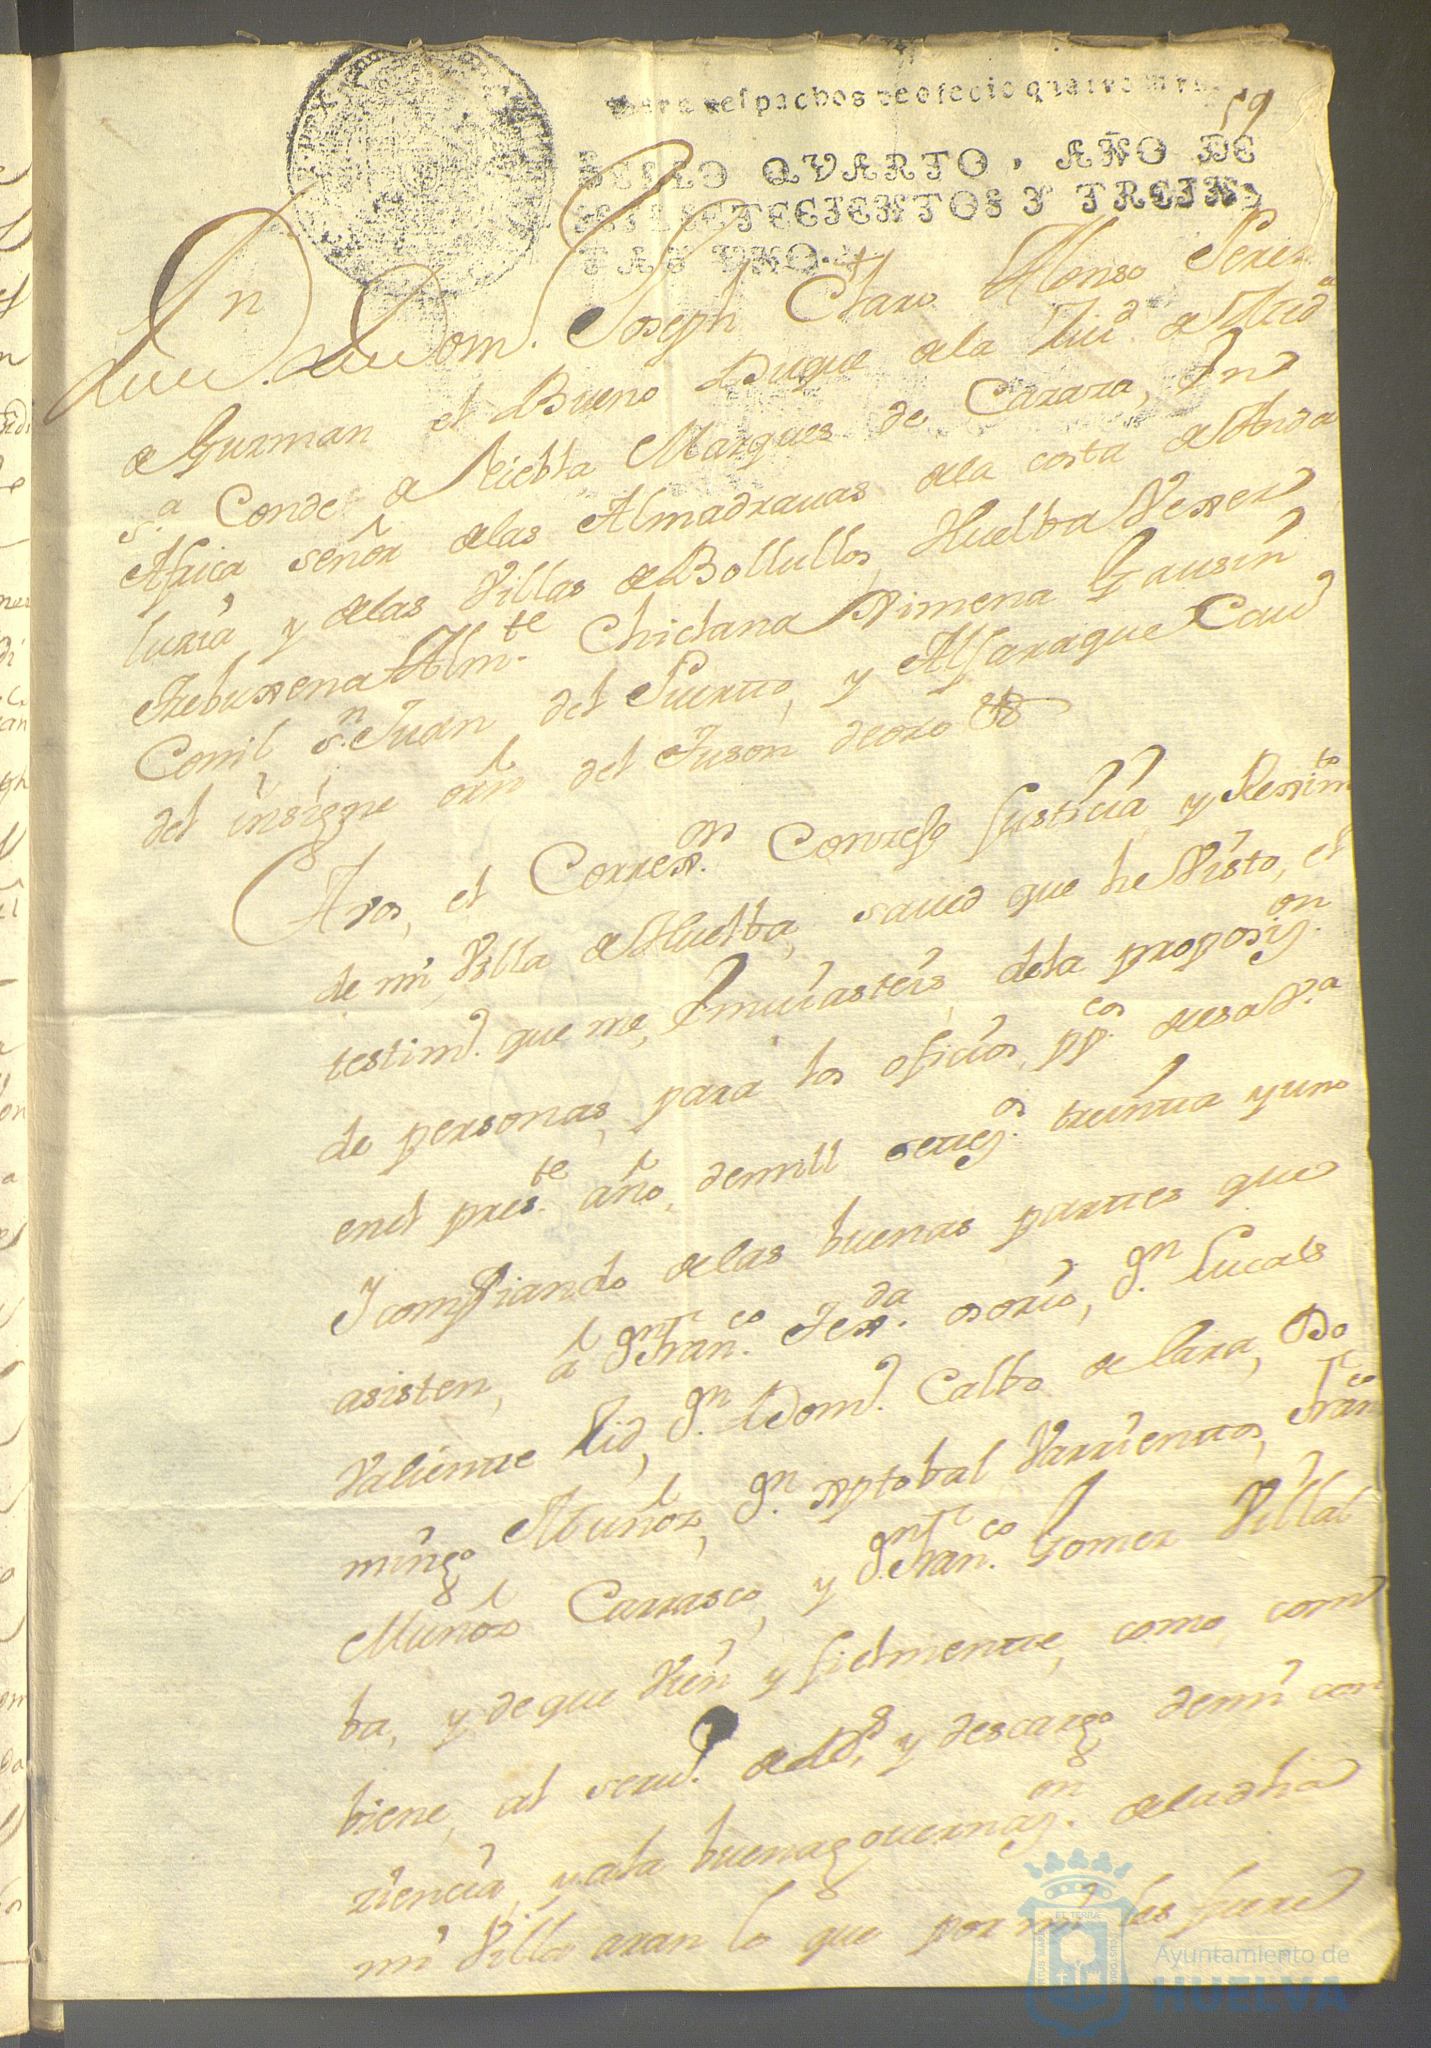 para despachos de oficio quatro mrs.
59
SELLO QVARTO, AÑO DE
MIL SETECIENTOS Y TREIN
TA Y VNO.
Don Joseph Claro Alonso Perez
de Guzman el Bueno Duque dela Ziud. de Med.ª
s.ª Conde de Niebla Marques de Cazaza, en
Africa señor delas Almadrauas dela costa del Anda
luzia y delas Villas de Bollullos, Huelba Vexer
Trebuxena Alm.te Chiclana Ximena Gausin
Conil s.n Juan del Puerto, y Alfaraque Cau.º
del insigne orn. del Tuson de oro &
A vos, el Correx.or Conzejo Justicia y Reximto
de mi Villa de Huelba, salud que he Visto, el
testim.º que me, Emuiasteis, dela proposiz.on
de personas, para los oficios pp.cos de esa V.ª
enel pres.te año, de mill setez.os treinta y uno
Y comfiando de las buenas partes que
asisten, a Dn. Fran.co Tex.da osorio, D.n Lucas
Valiente Lid, D.n Dom.º Calbo de Lara, Do
mingo Muñoz, D.n Xptobal Varrientos, Fran.co
Muñoz Carrasco, y Dn. Fran.co Gomez Villal
ba, y de que vien y fielmente, como, com
biene, al seru.º de Ds. y descargo de mi con
ziencia, y ala buena gouernaz.on dela dha
mi Villa aran lo que por mi les fuere
ET TERRÆ
Ayuntamiento de
HUELVA